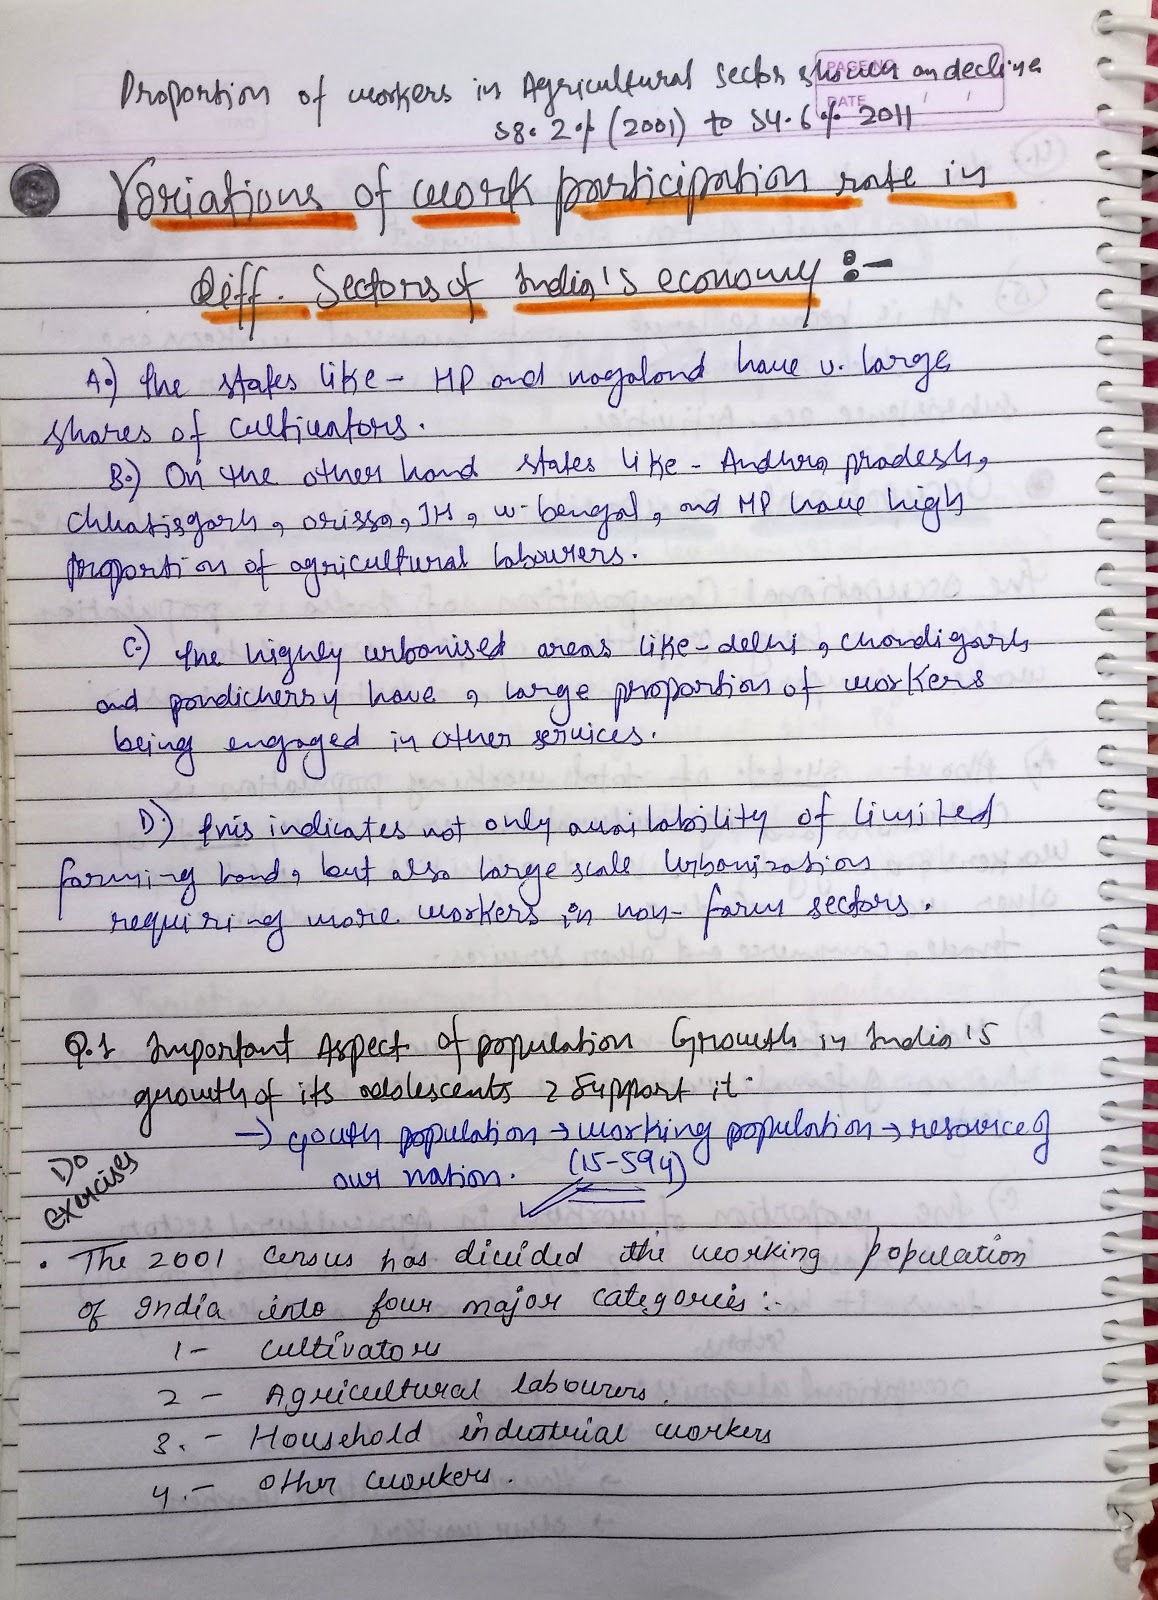 PAGE NO.
DATE / /
Proportion of workers in Agricultural sector shown an decline
58.2% (2001) to 54.6% 2011
Variations of work participation rate in
Diff. Sectors of India's economy :-
A.) The states like - HP and nagaland have v. large
shares of cultivators.
B.) On the other hand states like - Andhra pradesh,
chhatisgarh, orissa, JH, w-bengal, and MP have high
proportion of agricultural labourers.
C.) The highly urbanised areas like - delhi, chandigarh
and pondicherry have, large proportion of workers
being engaged in other services.
D.) This indicates not only availability of limited
farming land, but also large scale urbanization
requiring more workers in non-farm sectors.
Q.1 Important Aspect of population Growth in India is
growth of its adolescents ? Support it.
→ youth population → working population → resource of
our nation. (15-59y)
Do
exercises
• The 2001 census has divided the working population
of India into four major categories :-
1 - Cultivators
2 - Agricultural labourers.
3. - Household industrial workers
4. - other workers.